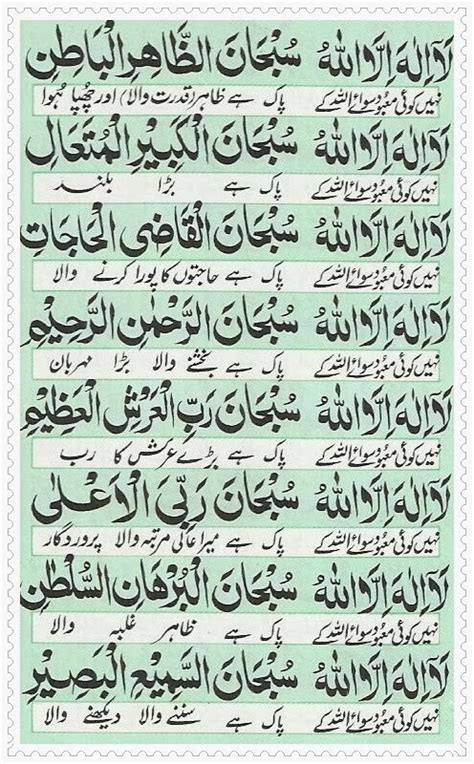 لَآ اِلٰهَ اِلَّا اللهُ سُبْحَانَ الظَّاهِرِ الْبَاطِنِ
نہیں کوئی معبود سوائے اللہ کے پاک ہے ظاہر (قدرت والا) اور چھپا ہُوا
لَآ اِلٰهَ اِلَّا اللهُ سُبْحَانَ الْكَبِيْرِ الْمُتَعَالِ
نہیں کوئی معبود سوائے اللہ کے پاک ہے بڑا بلند
لَآ اِلٰهَ اِلَّا اللهُ سُبْحَانَ الْقَاضِى الْحَاجَاتِ
نہیں کوئی معبود سوائے اللہ کے پاک ہے حاجتوں کا پورا کرنے والا
لَآ اِلٰهَ اِلَّا اللهُ سُبْحَانَ الرَّحْمٰنِ الرَّحِيْمِ
نہیں کوئی معبود سوائے اللہ کے پاک ہے بخشنے والا بڑا مہربان
لَآ اِلٰهَ اِلَّا اللهُ سُبْحَانَ رَبِّ الْعَرْشِ الْعَظِيْمِ
نہیں کوئی معبود سوائے اللہ کے پاک ہے بڑے عرش کا رب
لَآ اِلٰهَ اِلَّا اللهُ سُبْحَانَ رَبِّىَ الْاَعْلٰى
نہیں کوئی معبود سوائے اللہ کے پاک ہے میرا عالی مرتبہ والا پروردگار
لَآ اِلٰهَ اِلَّا اللهُ سُبْحَانَ الْبُرْهَانِ السُّلْطٰنِ
نہیں کوئی معبود سوائے اللہ کے پاک ہے ظاہر غلبہ والا
لَآ اِلٰهَ اِلَّا اللهُ سُبْحَانَ السَّمِيْعِ الْبَصِيْرِ
نہیں کوئی معبود سوائے اللہ کے پاک ہے سننے والا دیکھنے والا